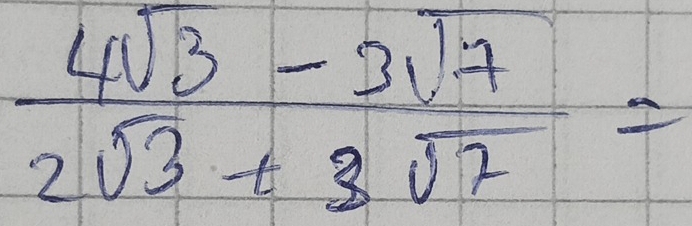 4√3 - 3√7
2√3 + 3√7 =